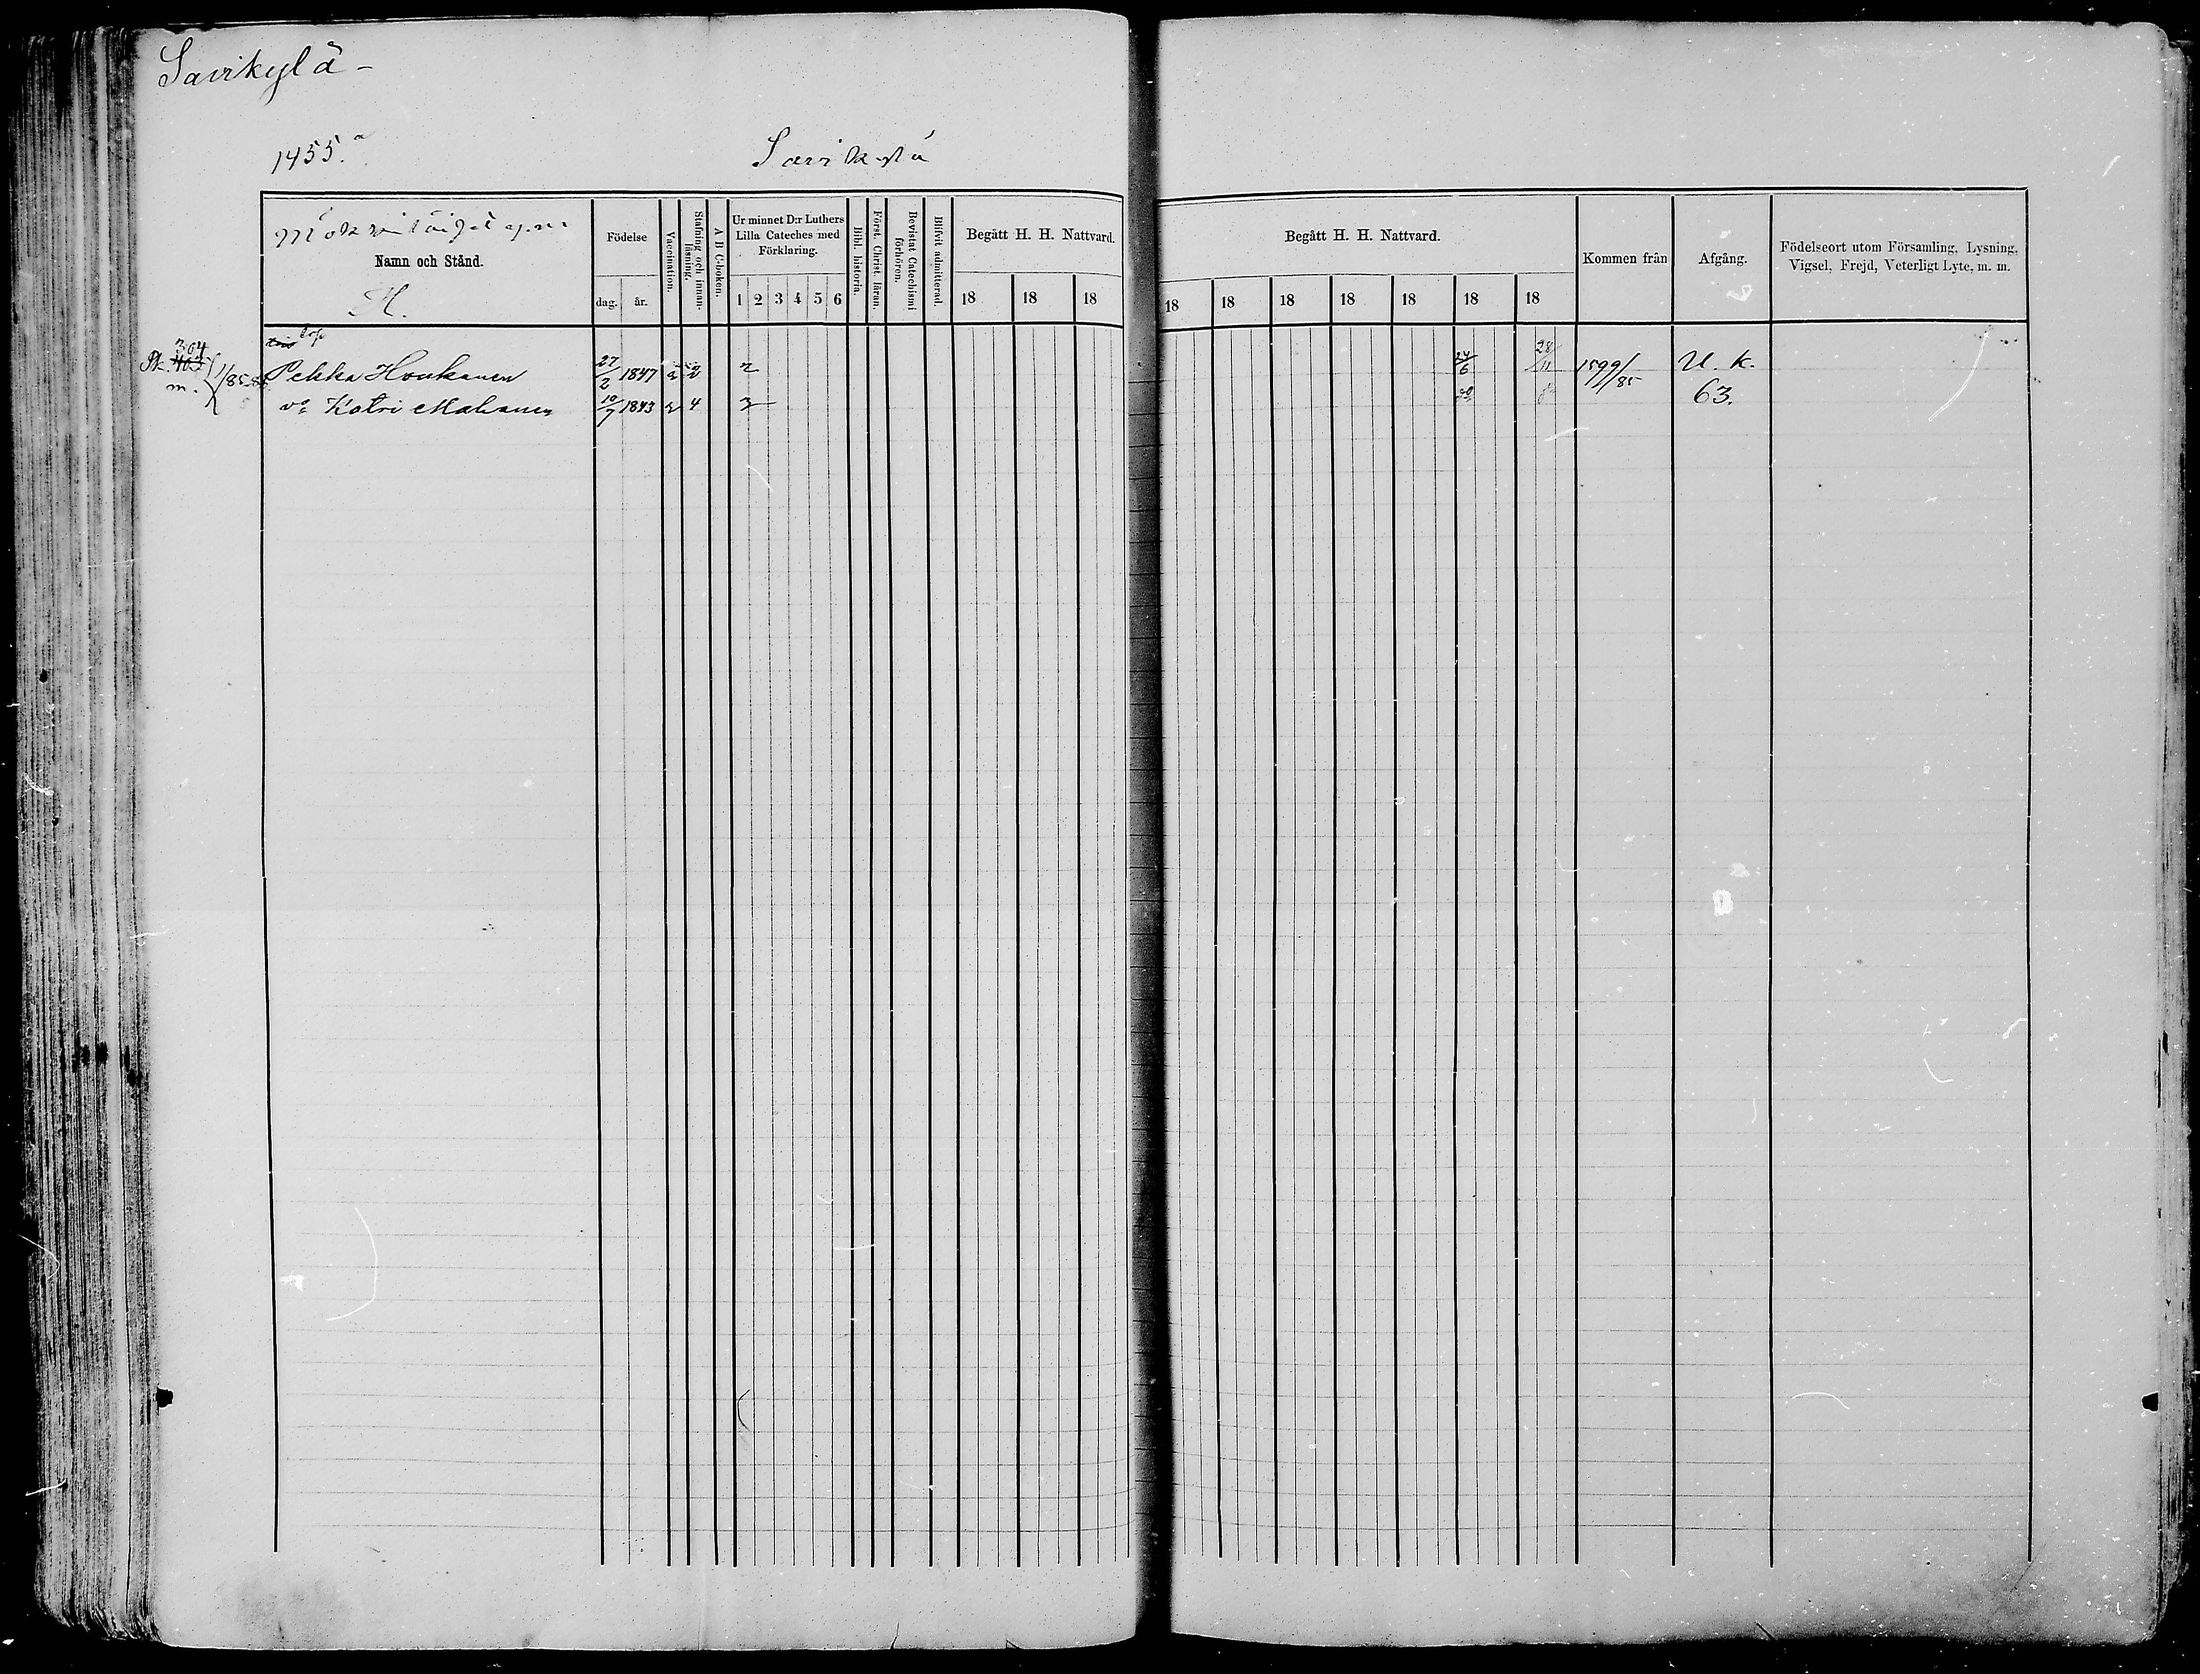 Savikylä
1455.a
Savikylä
Namn och Stånd.
H.
Födelse
dag. år.
Vaccination.
Stafning och innan-
läsning.
A B C-boken.
Ur minnet D:r Luthers
Lilla Cateches med
Förklaring.
1 2 3 4 5 6
Bibl. historia.
Först. Christ. läran.
Bevistat Catechismi
förhören.
Blifvit admitterad.
Begått H. H. Nattvard.
18 18 18
Begått H. H. Nattvard.
18 18 18 18 18 18 18
Kommen från
Afgång.
Födelseort utom Församling, Lysning,
Vigsel, Frejd, Veterligt Lyte, m. m.
304
403
m. 1/85
Pekka Honkanen 27/2 1847 2 2 24/6 28/11 1599/85 U. k.
Katri Makonen 10/7 1843 2 4 3 63.